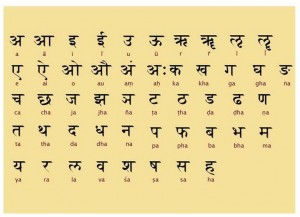 अ आ इ ई उ ऊ ऋ ॠ ऌ ॡ
a ā i ī u ū ṛ ṝ ḷ ḹ
ए ऐ ओ औ अं अः क ख ग घ ङ
e ai o au aṃ aḥ ka kha ga gha ṅa
च छ ज झ ञ ट ठ ड ढ ण
ca cha ja jha ña ṭa ṭha ḍa ḍha ṇa
त थ द ध न प फ ब भ म
ta tha da dha na pa pha ba bha ma
य र ल व श ष स ह
ya ra la va śa ṣa sa ha